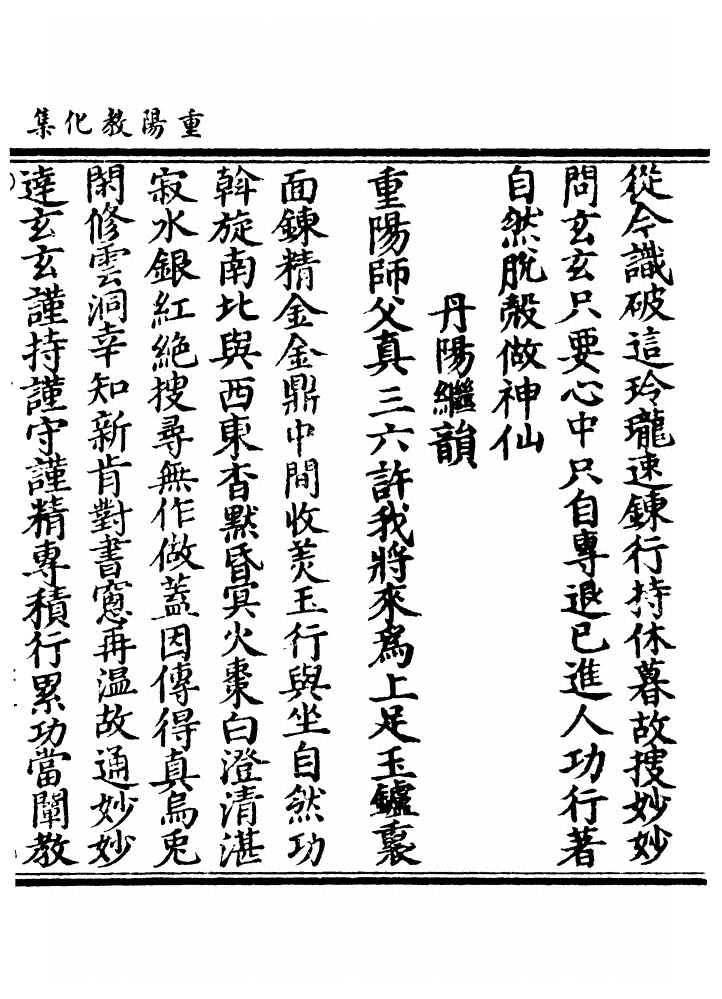 重陽教化集
從今識破這玲瓏速鍊行持休暮故搜妙妙
問玄玄只要心中只自專退己進人功行著
自然脫殼做神仙
丹陽繼韻
重陽師父真三六許我將來為上足玉鑪裏
面鍊精金金鼎中間收美玉行與坐自然功
斡旋南北與西東杳默昏冥火棗白澄清湛
寂水銀紅絕搜尋無作做蓋因傳得真烏兎
閑修雲洞幸知新肯對書窻再温故通妙妙
達玄玄謹持謹守謹精專積行累功當闡教